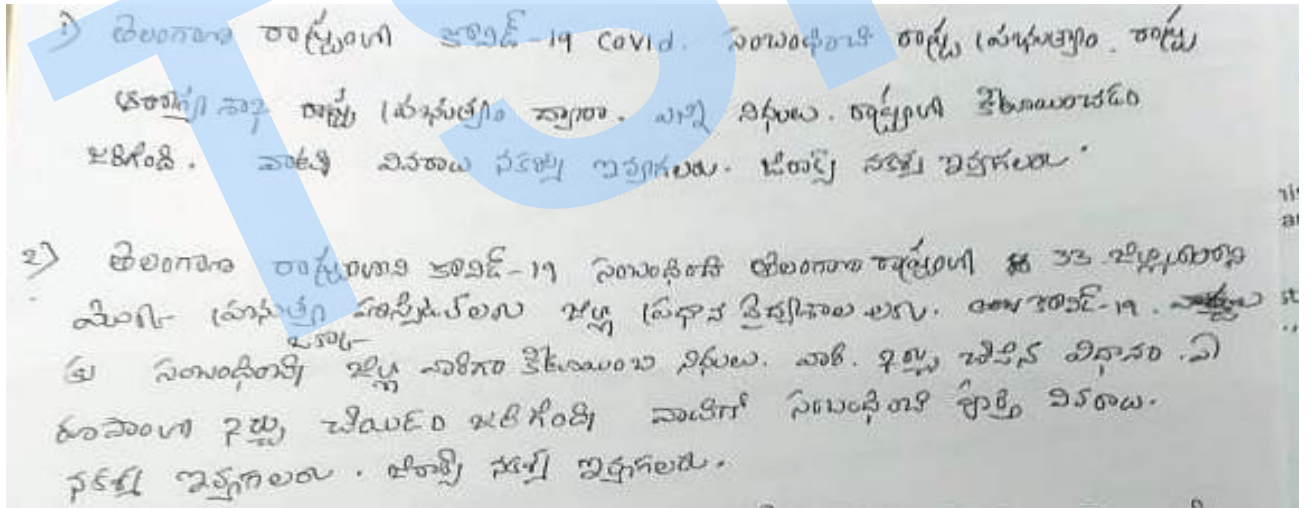 1) తెలంగాణ రాష్ట్రంలో కోవిడ్ -19 Covid. సంబంధించి రాష్ట్ర ప్రభుత్వం. రాష్ట్ర
ఆరోగ్య శాఖ రాష్ట్ర ప్రభుత్వం ద్వారా. ఎన్ని నిధులు. రాష్ట్రంలో కేటాయించడం
జరిగింది. వాటి వివరాలు నకళ్ళు ఇవ్వగలరు. జిరాక్స్ నకళ్ళు ఇవ్వగలరు.
2) తెలంగాణ రాష్ట్రంలోని కోవిడ్-19 సంబంధించి తెలంగాణ రాష్ట్రంలో 33 జిల్లాలలోని
మొత్తం ప్రభుత్వ హాస్పిటల్‌లలు జిల్లా ప్రధాన వైద్యశాలలలు. కోవిడ్-19.
కు సంబంధించి ఒకొక్క జిల్లా వారిగా కేటాయించి నిధులు. వారి. ఖర్చు చేసిన విధానం. ఏ
రూపాంలో ఖర్చు చేయడం జరిగింది వాటికి సంబంధించి పూర్తి వివరాలు.
నకళ్ళు ఇవ్వగలరు. జిరాక్స్ నకళ్ళు ఇవ్వగలరు.